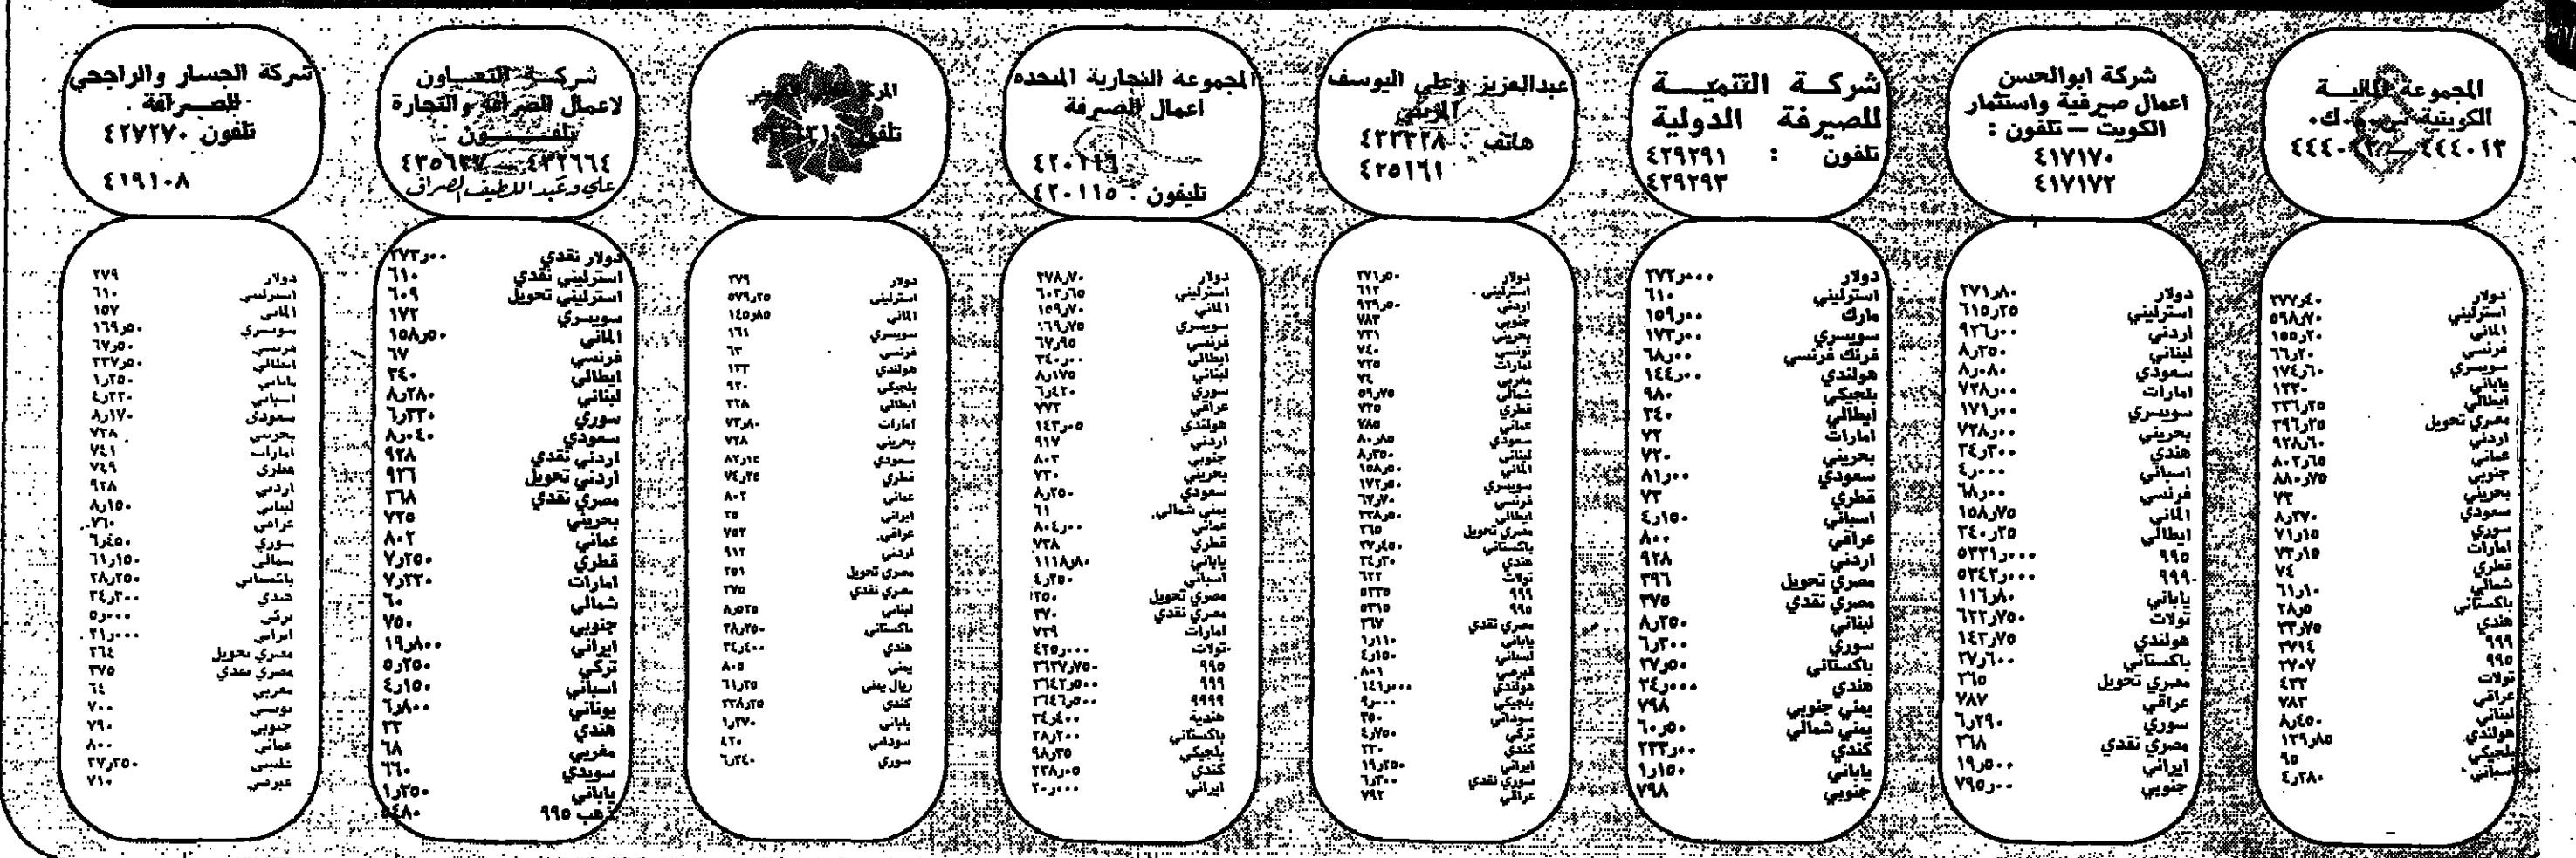 المجموعة المالية
الكويتية ش.م.ك.
٤٤٤٠١٣ —
دولار ٢٧٧٫٤٠
استرليني ٥٩٨٫٧٠
الماني ١٥٥٫٢٠
فرنسي ٦٦٫٢٠
سويسري ١٧٤٫٦٠
ياباني ١٢٢٠
ايطالي ٣٣٦٫٢٥
مصري تحويل ٣٩٦٫٢٥
اردني ٩٢٨٫٦٠
عماني ٨٠٢٫٦٥
جنوبي ٨٨٠٫٧٥
بحريني ٧٣
سعودي ٨٫٢٧٠
سوري ٧١٫١٥
امارات ٧٣٫١٥
قطري ٧٤
شمالي ٦١٫١٠
باكستاني ٢٨٫٥
هندي ٣٣٫٧٥
٩٩٩ ٣٧١٤
٩٩٥ ٣٧٠٧
تولات ٤٣٣
عراقي ٧٨٣
لبناني ٨٫٤٥٠
هولندي ١٣٩٫٨٥
بلجيكي ٩٥
اسباني ٤٫٢٨٠
شركة ابوالحسن
اعمال صيرفية واستثمار
الكويت — تلفون :
٤١٧١٧٠
٤١٧١٧٢
دولار ٢٧١٫٨٠
استرليني ٦١٥٫٢٥
اردني ٩٢٦٫٠٠
لبناني ٨٫٢٥٠
سعودي ٨٫٠٨٠
امارات ٧٢٨٫٠٠
سويسري ١٧١٫٠٠
بحريني ٧٢٨٫٠٠
هندي ٣٤٫٣٠٠
اسباني ٤٫٠٠٠
فرنسي ٦٨٫٠٠
الماني ١٥٨٫٧٥
ايطالي ٣٤٠٫٢٥
٩٩٥ ٥٣٢١٫٠٠٠
٩٩٩ ٥٣٤٢٫٠٠٠
ياباني ١١٦٫٨٠
تولات ٦٢٢٫٧٥٠
هولندي ١٤٣٫٧٥
باكستاني ٢٧٫٦٠٠
مصري تحويل ٣٦٥
عراقي ٧٨٧
سوري ٦٫٢٩٠
مصري نقدي ٣٦٨
ايراني ١٩٫٥٠٠
جنوبي ٧٩٥٫٠٠
شركة التنمية
للصيرفة الدولية
تلفون : ٤٢٩٢٩١
٤٢٩٢٩٣
دولار ٢٧٢٫٠٠٠
استرليني ٦١٠
مارك ١٥٩٫٠٠
سويسري ١٧٣٫٠٠
فرنك فرنسي ٦٨٫٠٠
هولندي ١٤٤٫٠٠
بلجيكي ٩٨٠
ايطالي ٣٤٠
امارات ٧٢
بحريني ٧٢٠
سعودي ٨١٫٠٠
قطري ٧٣
اسباني ٤٫١٥٠
عراقي ٨٠٠
اردني ٩٢٨
مصري تحويل ٣٩٦
مصري نقدي ٣٧٥
لبناني ٨٫٢٥٠
سوري ٦٫٣٠٠
باكستاني ٢٧٫٥٠
هندي ٣٤٫٠٠٠
يمني جنوبي ٧٩٨
يمني شمالي ٦٠٫٥٠
كندي ٢٣٣٫٠٠
ياباني ١٫١٥٠
جنوبي ٧٩٨
عبدالعزيز وعلي اليوسف
المزيني
هاتف : ٤٣٣٣٢٨
٤٢٥١٦١
دولار ٢٧١٫٥٠
استرليني ٦١٢
اردني ٩٢٩٫٥٠
جنوبي ٧٨٣
بحريني ٧٣١
تونسي ٧٤٠
امارات ٧٢٥
مغربي ٧٤
شمالي ٥٩٫٧٥
قطري ٧٢٥
عماني ٧٨٥
سعودي ٨٠٫٨٥
لبناني ٨٫٣٥٠
الماني ١٥٨٫٥٠
سويسري ١٧٢٫٥٠
فرنسي ٦٧٫٧٠
ايطالي ٣٣٨٫٥٠
مصري تحويل ٣٦٥
باكستاني ٢٧٫٤٥٠
هندي ٣٤٫٢٠
تولات ٦٢٢
٩٩٩ ٥٣٣٥
٩٩٥ ٥٣١٥
مصري نقدي ٣٦٧
ياباني ١٫١١٠
اسباني ٤٫١٥٠
قبرصي ٨٠١
هولندي ١٤١٫٠٠٠
بلجيكي ٩٫٠٠٠
سوداني ٣٥٠
تركي ٤٫٧٥٠
كندي ٢٣٠
ايراني ١٩٫٢٥٠
سوري نقدي ٦٫٣٠٠
عراقي ٧٩٢
المجموعة التجارية المتحده
اعمال الصيرفة
٤٢٠١١٦
تليفون : ٤٢٠١١٥
دولار ٢٧٨٫٧٠
استرليني ٦٠٢٫٦٥
الماني ١٥٩٫٧٠
سويسري ١٦٩٫٧٥
فرنسي ٦٧٫٩٥
ايطالي ٣٤٠٫٠٠
لبناني ٨٫١٧٥
سوري ٦٫٤٢٠
عراقي ٧٧٢
هولندي ١٤٣٫٠٥
اردني ٩١٧
جنوبي ٨٠٣
بحريني ٧٣٠
سعودي ٨٫٢٥٠
يمني شمالي ٦١
عماني ٨٠٤٫٠٠
قطري ٧٣٨
ياباني ١١١٨٫٨٠
اسباني ٤٫٢٥٠
مصري تحويل ٢٥٠
مصري نقدي ٣٧٠
امارات ٧٣٩
تولات ٤٢٥٫٠٠٠
٩٩٥ ٣٦٣٧٫٧٥٠
٩٩٩ ٣٦٤٢٫٥٠٠
٩٩٩٩ ٣٦٤٦٫٥٠٠
هندية ٣٤٫٤٠٠
باكستاني ٢٨٫٢٠٠
بلجيكي ٩٨٫٣٥
كندي ٢٣٨٫٠٥
ايراني ٢٠٫٠٠٠
تلفون
دولار ٢٧٩
استرليني ٥٧٩٫٢٥
الماني ١٤٥٫٨٥
سويسري ١٦١
فرنسي ٦٣
هولندي ١٣٣
بلجيكي ٩٢٠
ايطالي ٣٢٨
امارات ٧٣٫٨٠
بحريني ٧٢٨
سعودي ٨٢٫١٤
قطري ٧٤٫٢٤
عماني ٨٠٢
ايراني ٢٥
عراقي ٧٥٣
اردني ٩١٢
مصري تحويل ٢٥١
مصري نقدي ٢٧٥
لبناني ٨٫٥٢٥
باكستاني ٢٨٫٢٥٠
هندي ٣٤٫٤٠٠
يمني ٨٠٥
ريال يمني ٦١٫٢٥
كندي ٢٣٨٫٢٥
ياباني ١٫٢٧٠
سوداني ٤٢٠
سوري ٦٫٢٤٠
شركة التعاون
لاعمال الصرافة والتجارة
تلفون :
٤٣٢٦٦٤ — ٤٣٥٦٣٧
علي وعبد اللطيف الصراف
دولار نقدي ٢٧٣٫٠٠
استرليني نقدي ٦١٠
استرليني تحويل ٦٠٩
سويسري ١٧٢
الماني ١٥٨٫٥٠
فرنسي ٦٧
ايطالي ٣٤٠
لبناني ٨٫٢٨٠
سوري ٦٫٣٢٠
سعودي ٨٫٠٤٠
اردني نقدي ٩٢٨
اردني تحويل ٩٢٦
مصري نقدي ٣٦٨
بحريني ٧٢٥
عماني ٨٠٢
قطري ٧٫٢٥٠
امارات ٧٫٢٢٠
شمالي ٦٠
جنوبي ٧٥٠
ايراني ١٩٫٨٠٠
تركي ٥٫٢٥٠
اسباني ٤٫١٥٠
يوناني ٦٫٨٠٠
هندي ٣٣
مغربي ٦٨
سويدي ٦٦٠
ياباني ١٫٢٥٠
ذهب ٩٩٥ ٥٤٨٠
شركة الجسار والراجحي
للصرافة
تلفون ٤٢٧٢٧٠
٤١٩١٠٨
دولار ٢٧٩
استرليني ٦١٠
الماني ١٥٧
سويسري ١٦٩٫٥٠
فرنسي ٦٧٫٥٠
ايطالي ٣٣٧٫٥٠
ياباني ١٫٢٥٠
اسباني ٤٫٢٢٠
سعودي ٨٫١٧٠
بحريني ٧٢٨
امارات ٧٤١
قطري ٧٤٩
اردني ٩٢٨
لبناني ٨٫١٥٠
عراقي ٧٦٠
سوري ٦٫٤٥٠
شمالي ٦١٫١٥٠
باكستاني ٢٨٫٢٥٠
هندي ٣٤٫٣٠٠
تركي ٥٫٠٠٠
ايراني ٢١٫٠٠٠
مصري تحويل ٣٦٤
مصري نقدي ٣٧٥
مغربي ٦٤
تونسي ٧٠٠
جنوبي ٧٩٠
عماني ٨٠٠
٢٧٫٢٥٠
قبرصي ٧١٠